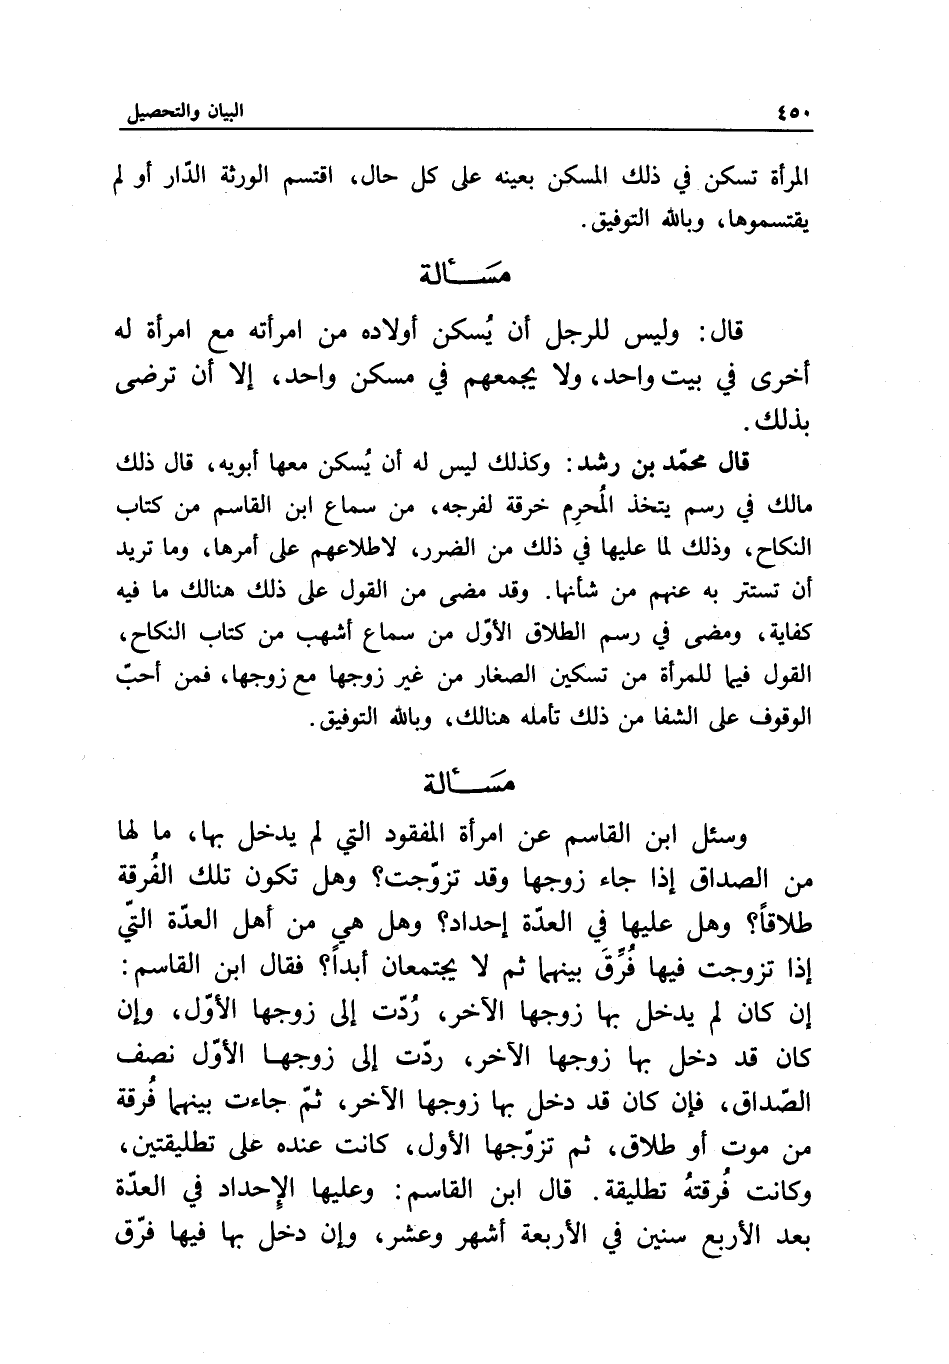 ٤٥٠ البيان والتحصيل
المرأة تسكن في ذلك المسكن بعينه على كل حال، اقتسم الورثة الدّار أو لم
يقتسموها، وبالله التوفيق.
مسَـــألة
قال: وليس للرجل أن يُسكن أولاده من امرأته مع امرأة له
أخرى في بيت واحد، ولا يجمعهم في مسكن واحد، إلا أن ترضى
بذلك.
قال محمّد بن رشد: وكذلك ليس له أن يُسكن معها أبويه، قال ذلك
مالك في رسم يتخذ المُحرِم خرقة لفرجه، من سماع ابن القاسم من كتاب
النكاح، وذلك لما عليها في ذلك من الضرر، لاطلاعهم على أمرها، وما تريد
أن تستتر به عنهم من شأنها. وقد مضى من القول على ذلك هنالك ما فيه
كفاية، ومضى في رسم الطلاق الأوّل من سماع أشهب من كتاب النكاح،
القول فيما للمرأة من تسكين الصغار من غير زوجها مع زوجها، فمن أحبّ
الوقوف على الشفا من ذلك تأمله هنالك، وبالله التوفيق.
مسَـــألة
وسئل ابن القاسم عن امرأة المفقود التي لم يدخل بها، ما لها
من الصداق إذا جاء زوجها وقد تزوّجت؟ وهل تكون تلك الفُرقة
طلاقاً؟ وهل عليها في العدّة إحداد؟ وهل هي من أهل العدّة التّي
إذا تزوجت فيها فُرِّقَ بينهما ثم لا يجتمعان أبداً؟ فقال ابن القاسم:
إن كان لم يدخل بها زوجها الآخر، رُدّت إلى زوجها الأوّل، وإن
كان قد دخل بها زوجها الآخر، ردّت إلى زوجهـا الأوّل نصف
الصّداق، فإن كان قد دخل بها زوجها الآخر، ثمّ جاءت بينهما فُرقة
من موت أو طلاق، ثم تزوّجها الأول، كانت عنده على تطليقتين،
وكانت فُرقتهُ تطليقة. قال ابن القاسم: وعليها الإحداد في العدّة
بعد الأربع سنين في الأربعة أشهر وعشر، وإن دخل بها فيها فرّق